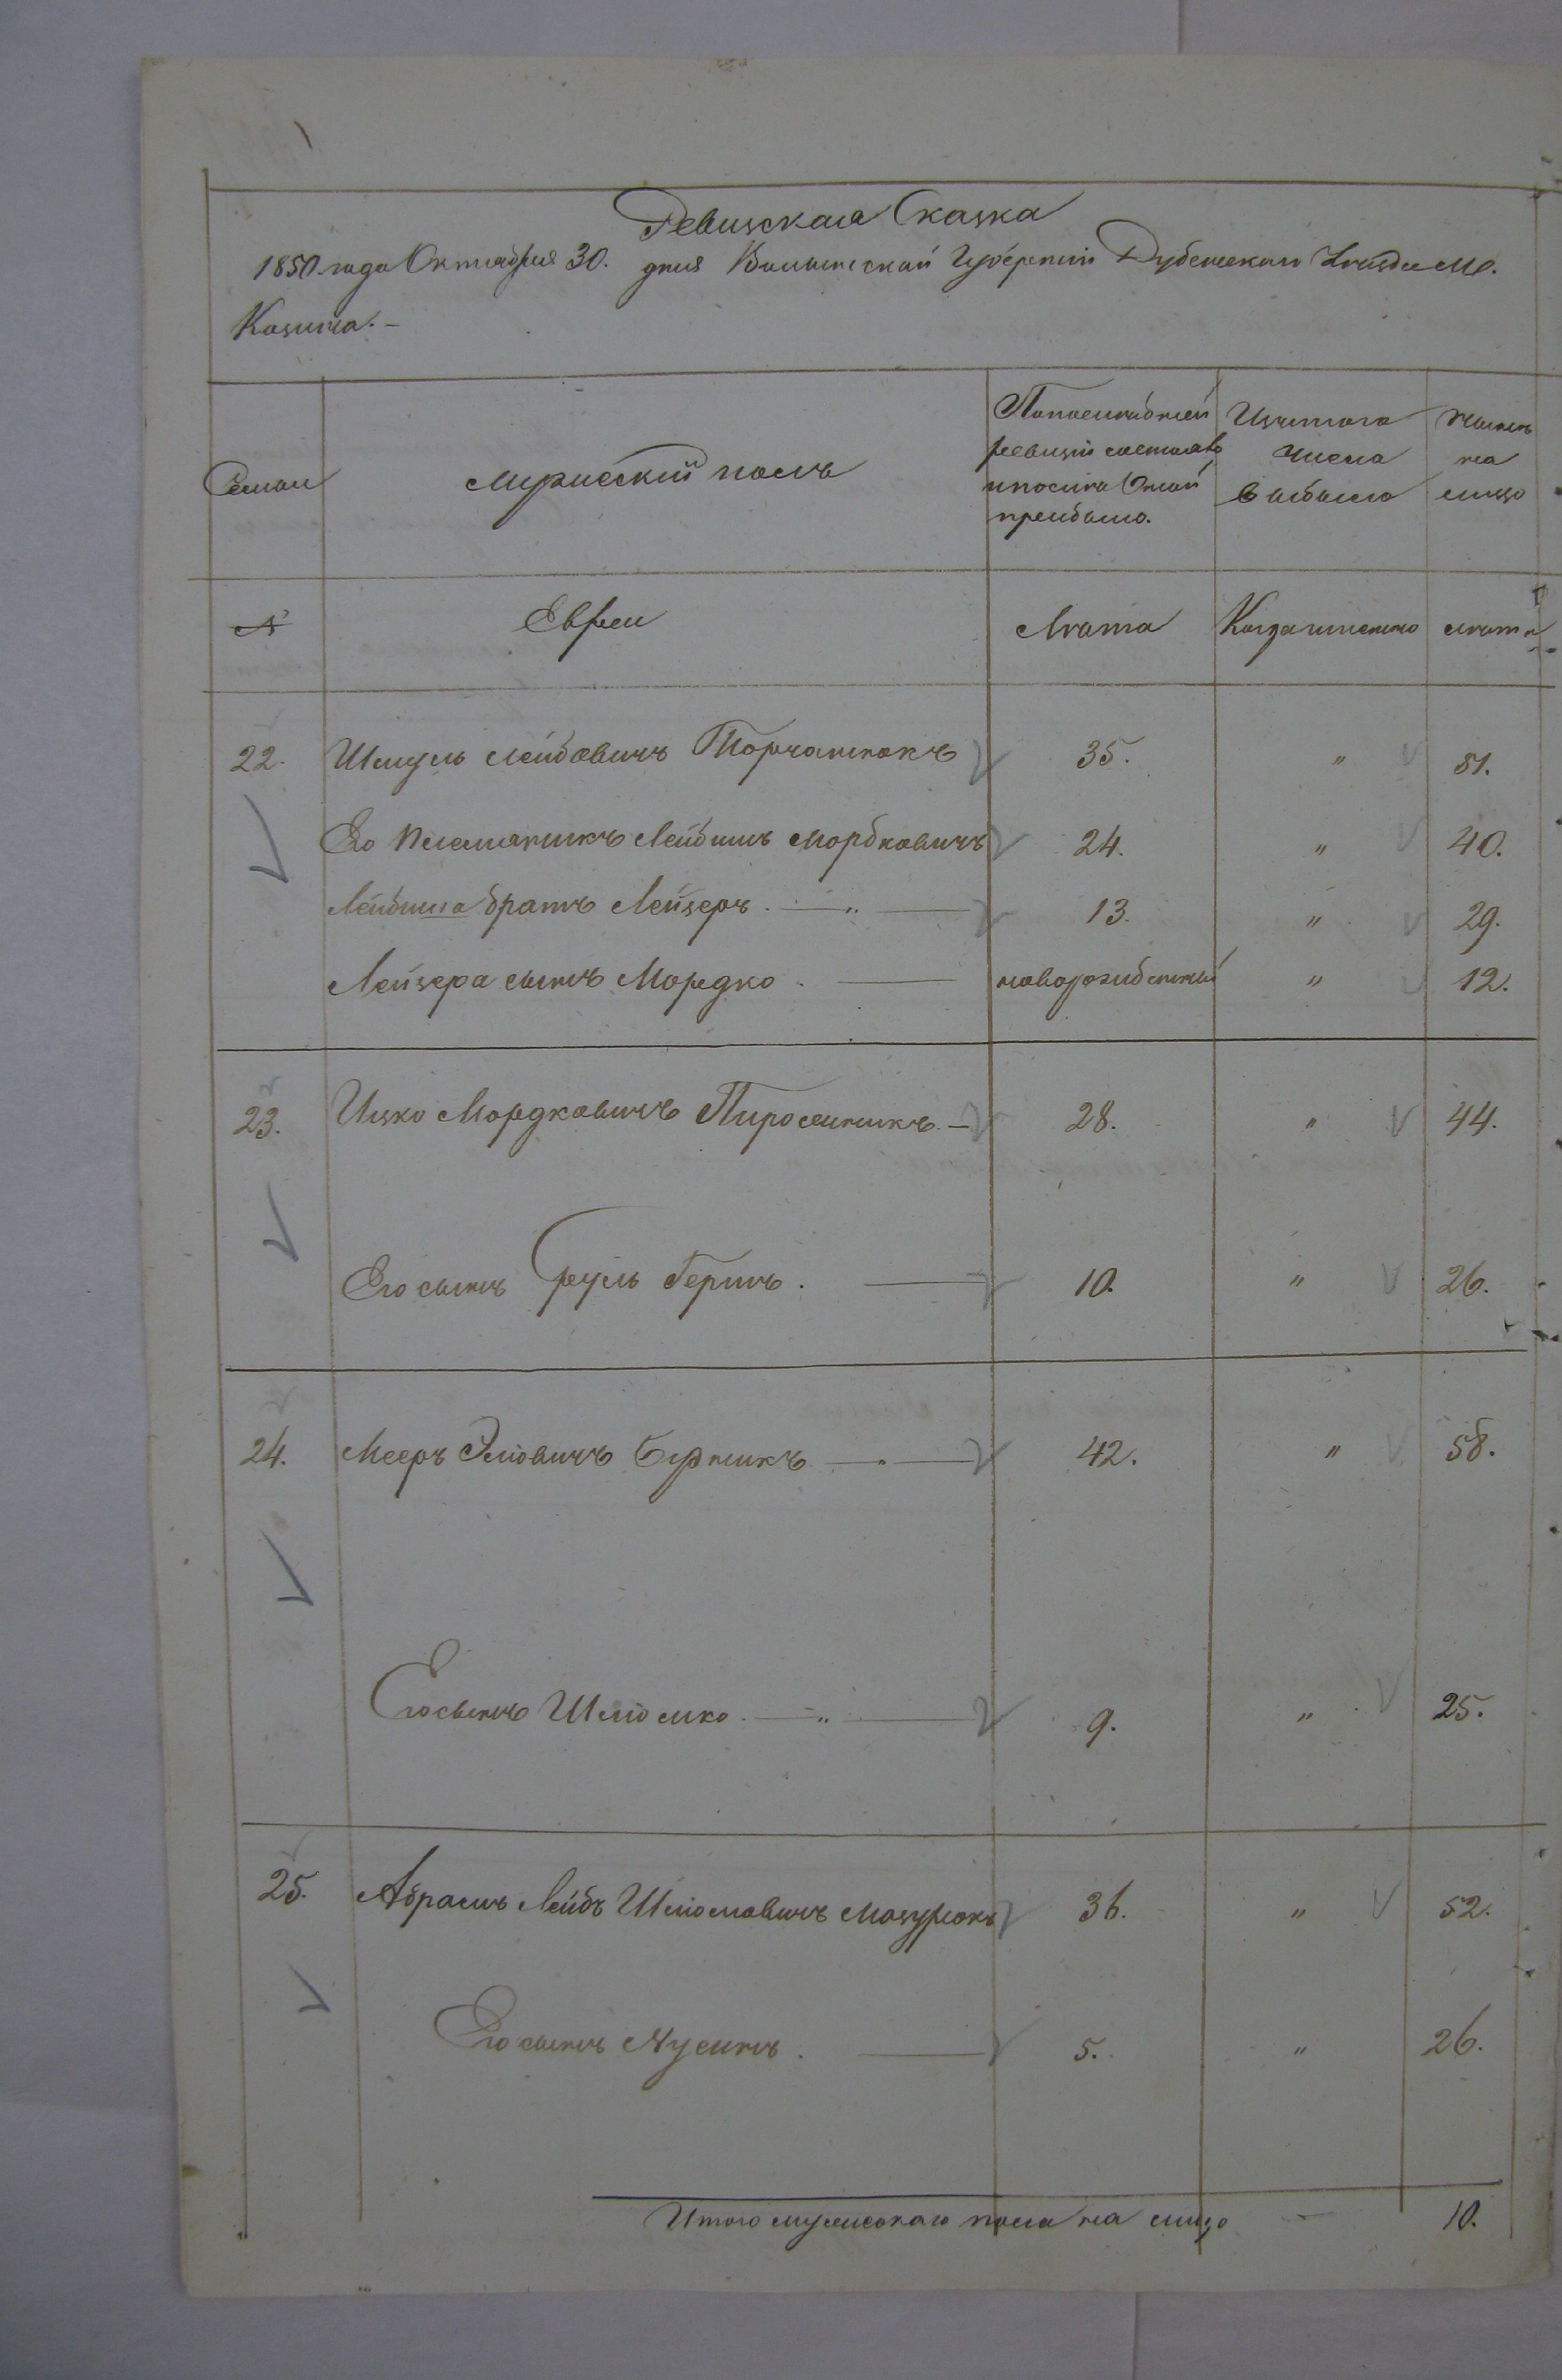 Ревизская Сказка
1850 года Октября 30. дня Волынской Губернии Дубенскаго Уезда М.
Козина. –
Семьи
Мужеский полъ
По последней ревизии состояло и после Оной прибыло.
Изъ того числа выбыло
Ныне на лицо
№
Евреи
Лѣта
Когда именно
Лѣта
22. Шмуль Лейбовичъ Торчатнокъ 35. " 51.
Его Племяникъ Лейбишъ Мордковичъ 24. " 40.
Лейбиша братъ Лейзеръ. — „ — 13. " 29.
Лейзера сынъ Мордко. — новорожденный " 12.
23. Ицко Мордковичъ Пиросятникъ. — 28. " 44.
Его сынъ Сруль Гершъ. — 10. " 26.
24. Мееръ Элiовичъ 42. " 58.
Его сынъ Шлiомко. — „ — 9. " 25.
25. Абрамъ Лейбъ Шлiомовичъ Мазурокъ 36. " 52.
Его сынъ Нусинъ. — 5. " 26.
Итого мужескаго пола на лицо – 10.